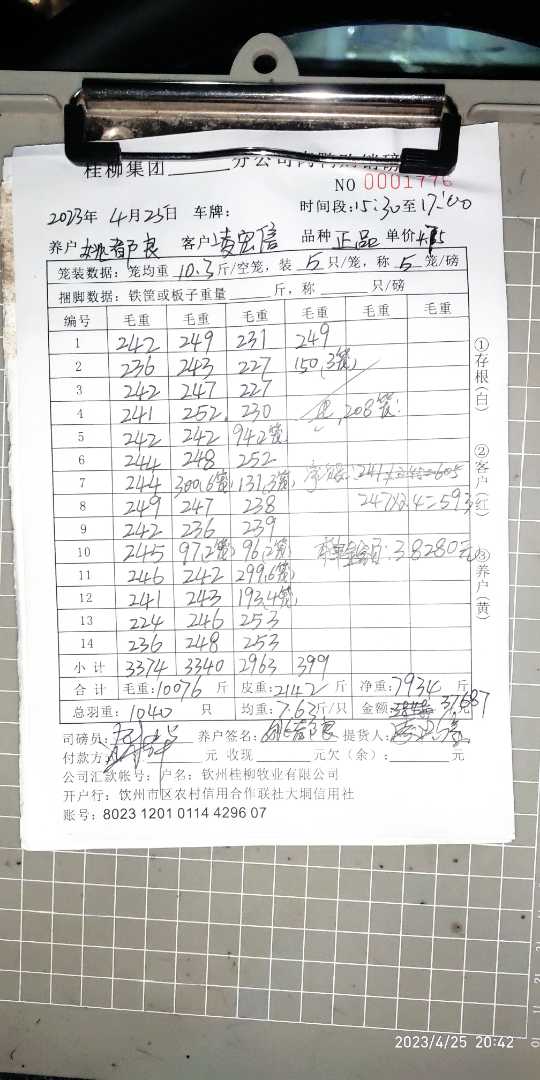 桂柳集团 分公司肉鸭购销磅
NO 0001776
2023年 4月25日 车牌: 时间段:15:30至17:00
养户 客户 凌宏信 品种 正品 单价
笼装数据: 笼均重 10.3 斤/空笼, 装 5 只/笼, 称 5 笼/磅
捆脚数据: 铁筐或板子重量 斤, 称 只/磅
编号 毛重 毛重 毛重 毛重 毛重 毛重
1 242 249 231 249
2 236 243 227 150(3笼)
3 242 247 227
4 241 252 230 208笼
5 242 242 94(2笼)
6 244 248 252
7 244 300(6笼) 131(3笼)
8 249 247 238
9 242 236 239
10 245 97(2笼) 96(2笼) 38280元
11 246 242 299(6笼)
12 241 243 193(4笼)
13 224 246 253
14 236 248 253
小计 3374 3340 2963 399
合计 毛重:10076 斤 皮重:2142 斤 净重:7934 斤
总羽重: 1040 只 均重: 7.63 斤/只 金额: 37687 元
司磅员: 养户签名: 提货人:
付款方 元 收现 元欠(余): 元
公司汇款帐号: 户名: 钦州桂柳牧业有限公司
开户行: 钦州市区农村信用合作联社大垌信用社
账号: 8023 1201 0114 4296 07
①存根(白)
②客户(红)
③养户(黄)
2023/4/25 20:42